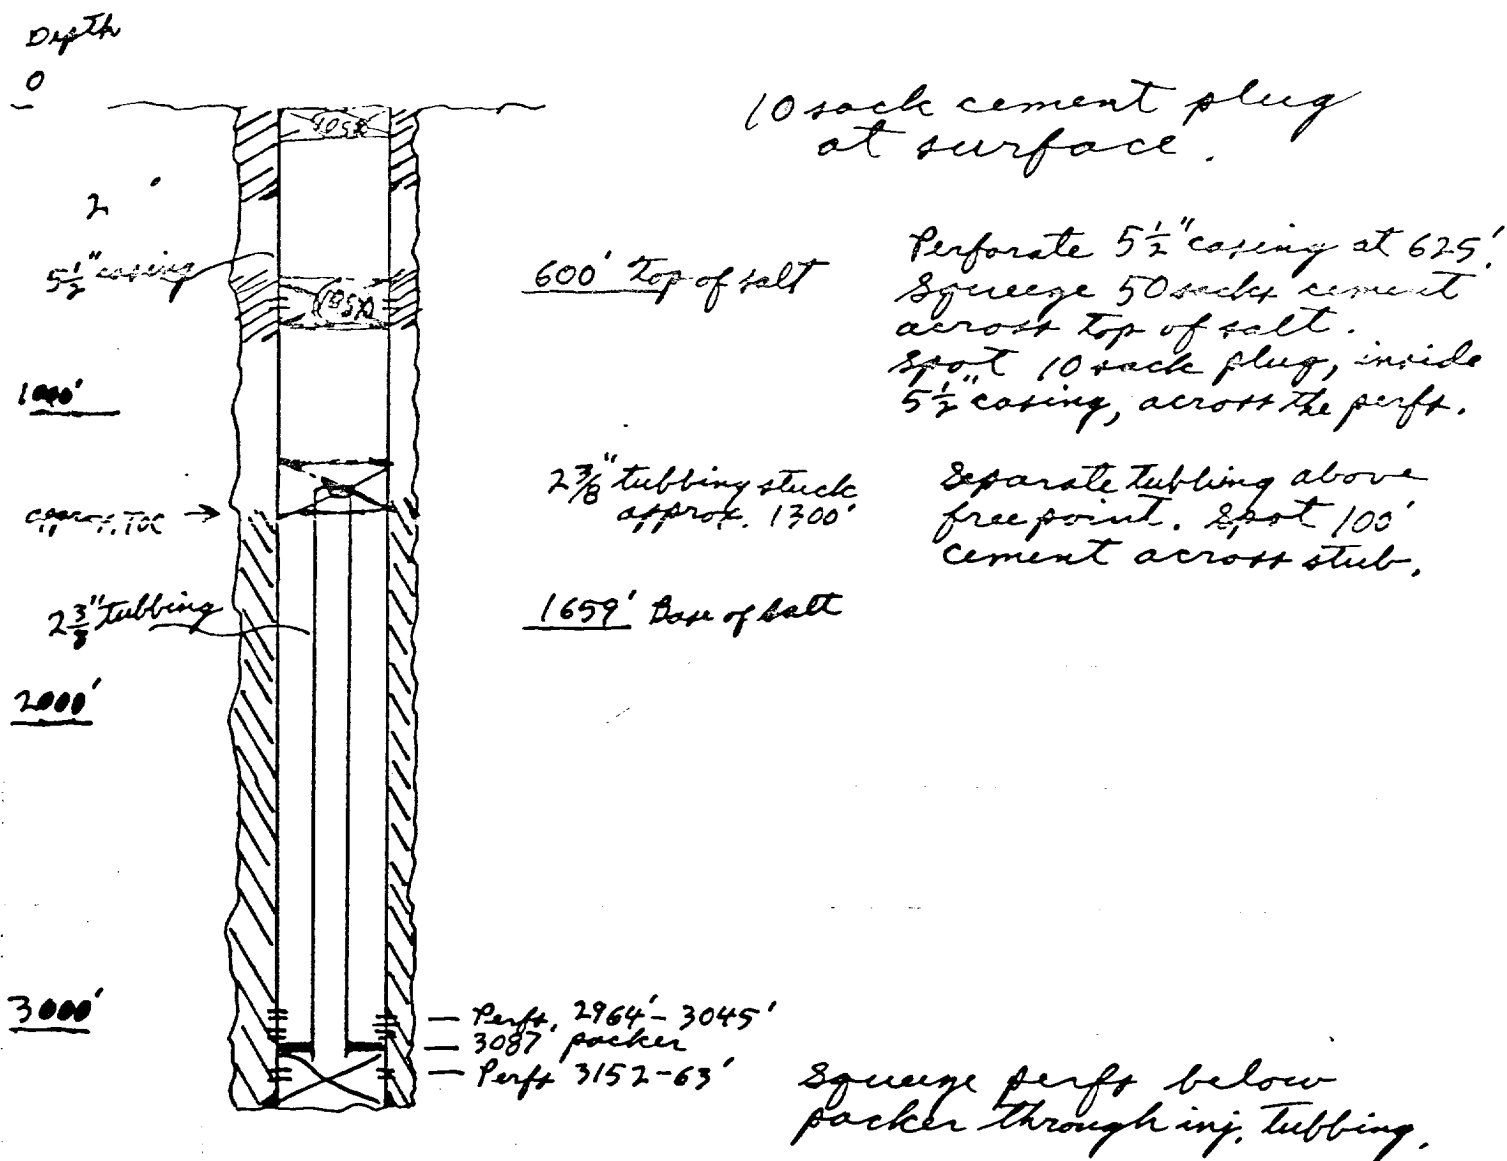 Depth
0
10 sack cement plug
at surface.
10SX
2
5 1/2" casing
600' Top of salt
10SX
Perforate 5 1/2" casing at 625'
Squeeze 50 sacks cement
across top of salt.
Spot 10 sack plug, inside
5 1/2" casing, across the perfs.
1000'
2 3/8" tubbing stuck
approx. 1300'
Separate tubbing above
free point. Spot 100'
cement across stub.
approx. TOC →
2 3/8" tubbing
1659' Base of salt
2000'
3000'
Perfs. 2964'-3045'
3087' packer
Perfs 3152-63'
Squeeze perfs below
packer through inj. tubbing.